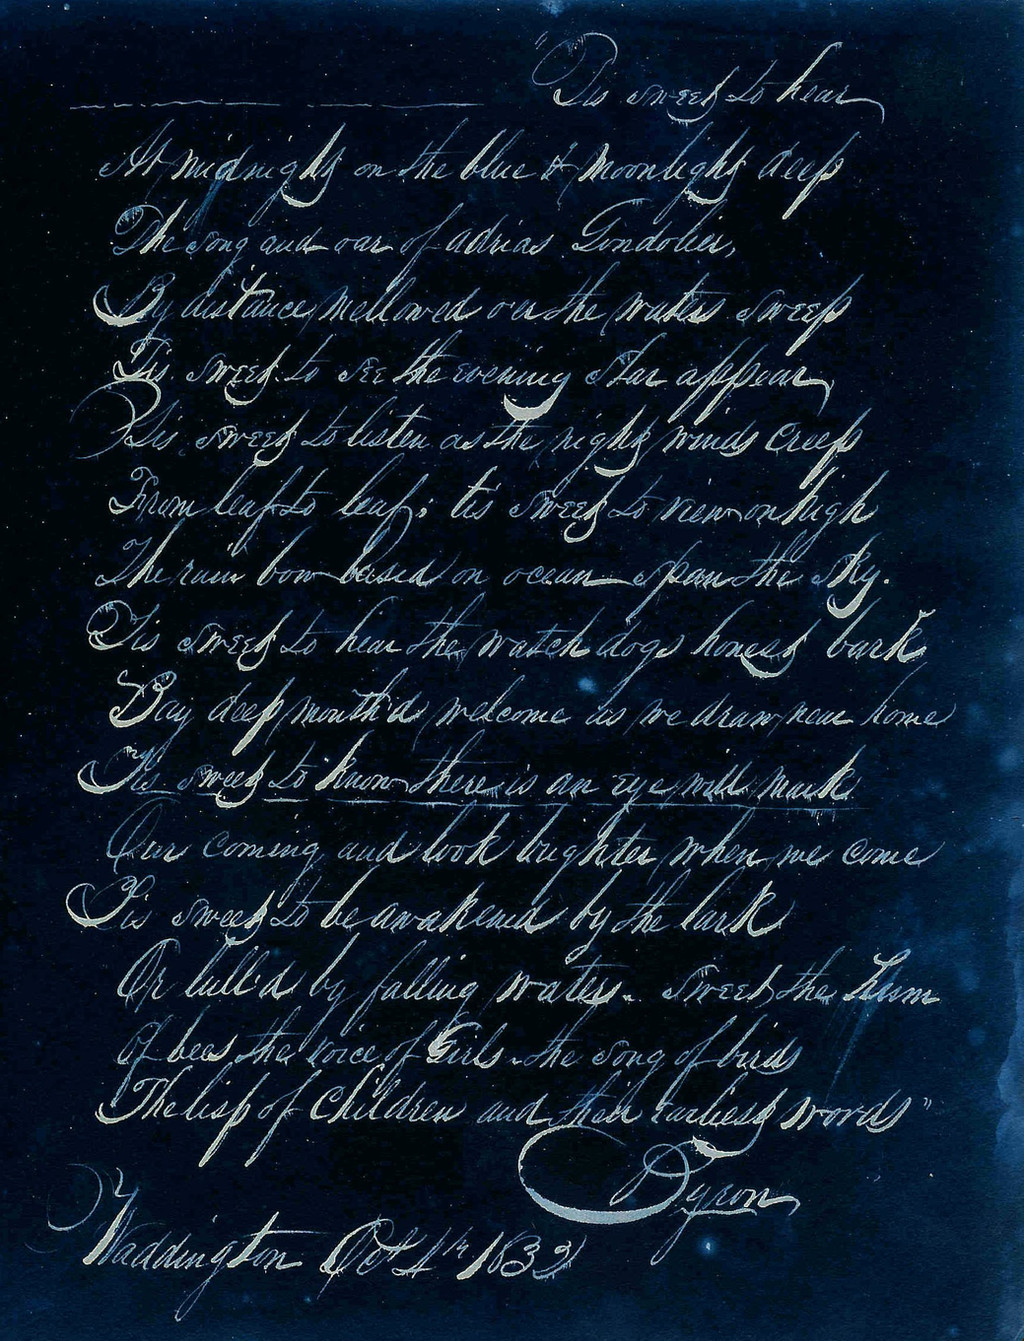 "Tis sweet to hear
At midnight on the blue & moonlight deep
The song and oar of adrias Gondolier,
By distance mellowed o'er the waters sweep
Tis sweet to see the evening star appear
Tis sweet to listen as the night winds creep
From leaf to leaf; tis sweet to view on high
The rain bow based on ocean span the sky.
Tis sweet to hear the watch dogs honest bark
Bay deep mouth'd welcome as we draw near home
Tis sweet to know there is an eye will mark
Our coming and look brighter when we come
Tis sweet to be awakened by the lark
Or lull'd by falling waters. Sweet the hum
Of bees the voice of Girls. the song of birds
The lisp of Children and their earliest words"
Byron
Waddington Oct 4th